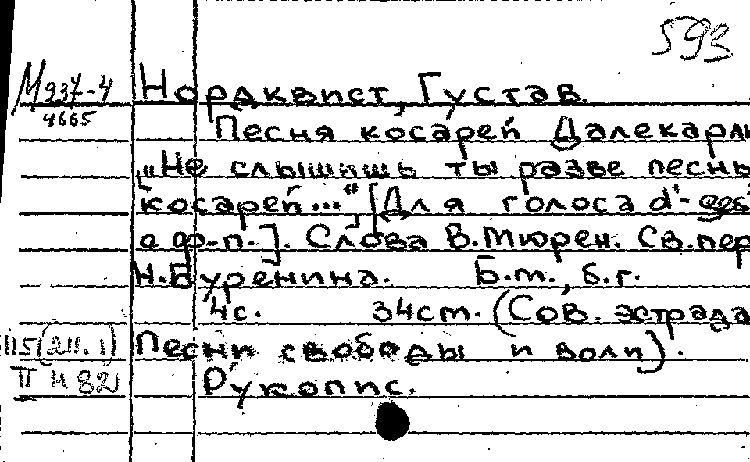 593
М937-4 Нордквист, Густав.
4665 Песня косарей Далекарли
„Не слышишь ты разве песнь
косарей...", [Для голоса d'-
а ф.-п.]. Слова В. Мюрен. Св. пер
Н. Буренина. Б.м., б.г.
4с. 34cm. (Сов. эстрада
115(211.1) Песни свободы и воли).
II н 82 Рукопис.